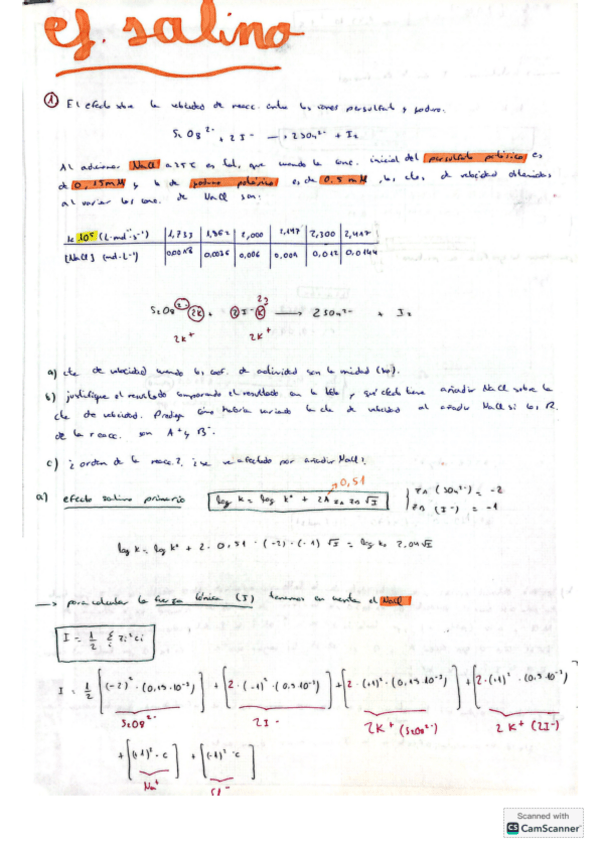 ef. salino
① El efecto sobre la velocidad de reacc. entre los iones persulfato y yoduro.
S2O8 2- + 2I- → 2SO4 2- + I2
Al adicionar NaCl a 25ºC es tal, que cuando la conc. inicial del persulfato potásico es
de 0,15mM y la de yoduro potásico es de 0,5 mM, las ctes. de velocidad obtenidas
al variar las conc. de NaCl son:
k 10⁵ (L·mol⁻¹·s⁻¹) 1,733 1,862 2,000 2,147 2,300 2,417
[NaCl] (mol·L⁻¹) 0,0018 0,0036 0,006 0,009 0,012 0,0144
S2O8 2- 2K+ 2I- K → 2SO4 2- + I2
2K+ 2K+
a) cte de velocidad cuando los coef. de actividad son la unidad (k0).
b) justifique el resultado comparando el resultado con la teoría y qué efecto tiene añadir NaCl sobre la
cte de velocidad. Prediga cómo habría variado la cte de velocidad al añadir NaCl si los R.
de la reacc. son A+ y B-.
c) ¿orden de la reacc.?, ¿se ve afectado por añadir NaCl?
0,51
a) efecto salino primario log k = log k° + 2A zA zB √I zA (SO4 2-) = -2
zB (I-) = -1
log k = log k° + 2 · 0,51 · (-2) · (-1) √I = log k0 2,04√I
→ para calcular la fuerza iónica (I) tenemos en cuenta el NaCl
I = 1/2 Σ zi² ci
i
I = 1/2 [(-2)² · (0,15·10⁻³)] + [2·(-1)² · (0,5·10⁻³)] + [2·(+1)² · (0,15·10⁻³)] + [2·(+1)² · (0,5·10⁻³)
S2O8 2- 2I- 2K+ (S2O8 2-) 2K+ (2I-)
+ [(+1)² · c] + [(-1)² · c]
Na+ Cl-
Scanned with
CS CamScanner